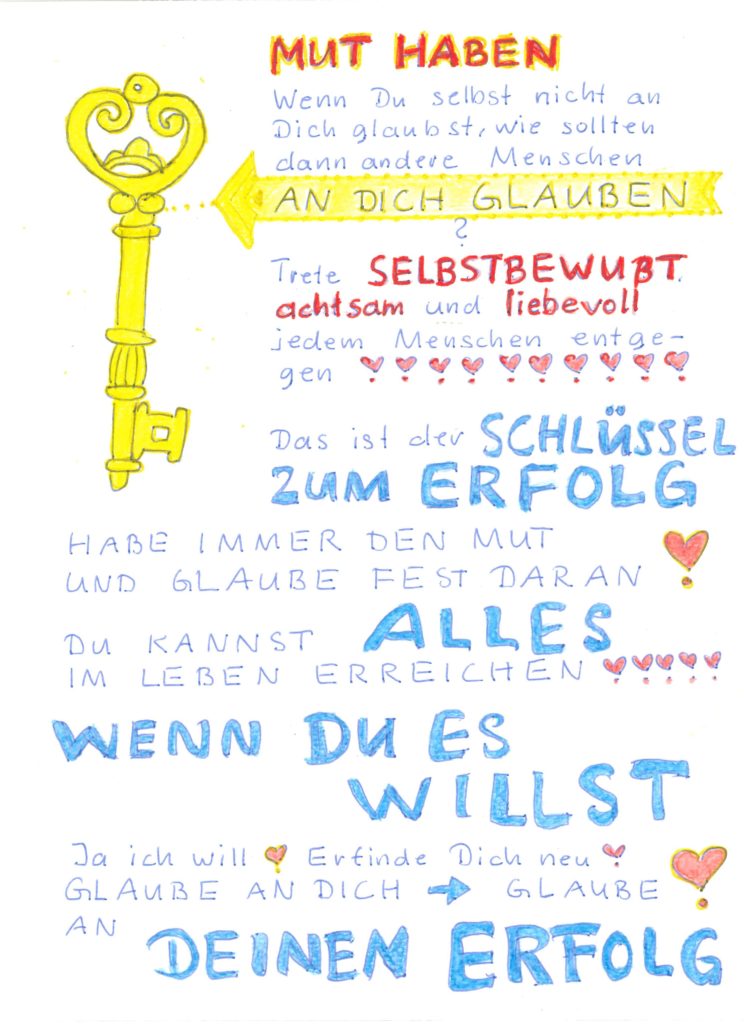 MUT HABEN
Wenn Du selbst nicht an
Dich glaubst, wie sollten
dann andere Menschen
AN DICH GLAUBEN
?
Trete SELBSTBEWUßT.
achtsam und liebevoll
jedem Menschen entge-
gen
Das ist der SCHLÜSSEL
ZUM ERFOLG
HABE IMMER DEN MUT
UND GLAUBE FEST DARAN
DU KANNST ALLES
IM LEBEN ERREICHEN
WENN DU ES
WILLST
Ja ich will Erfinde Dich neu
GLAUBE AN DICH → GLAUBE
AN DEINEN ERFOLG